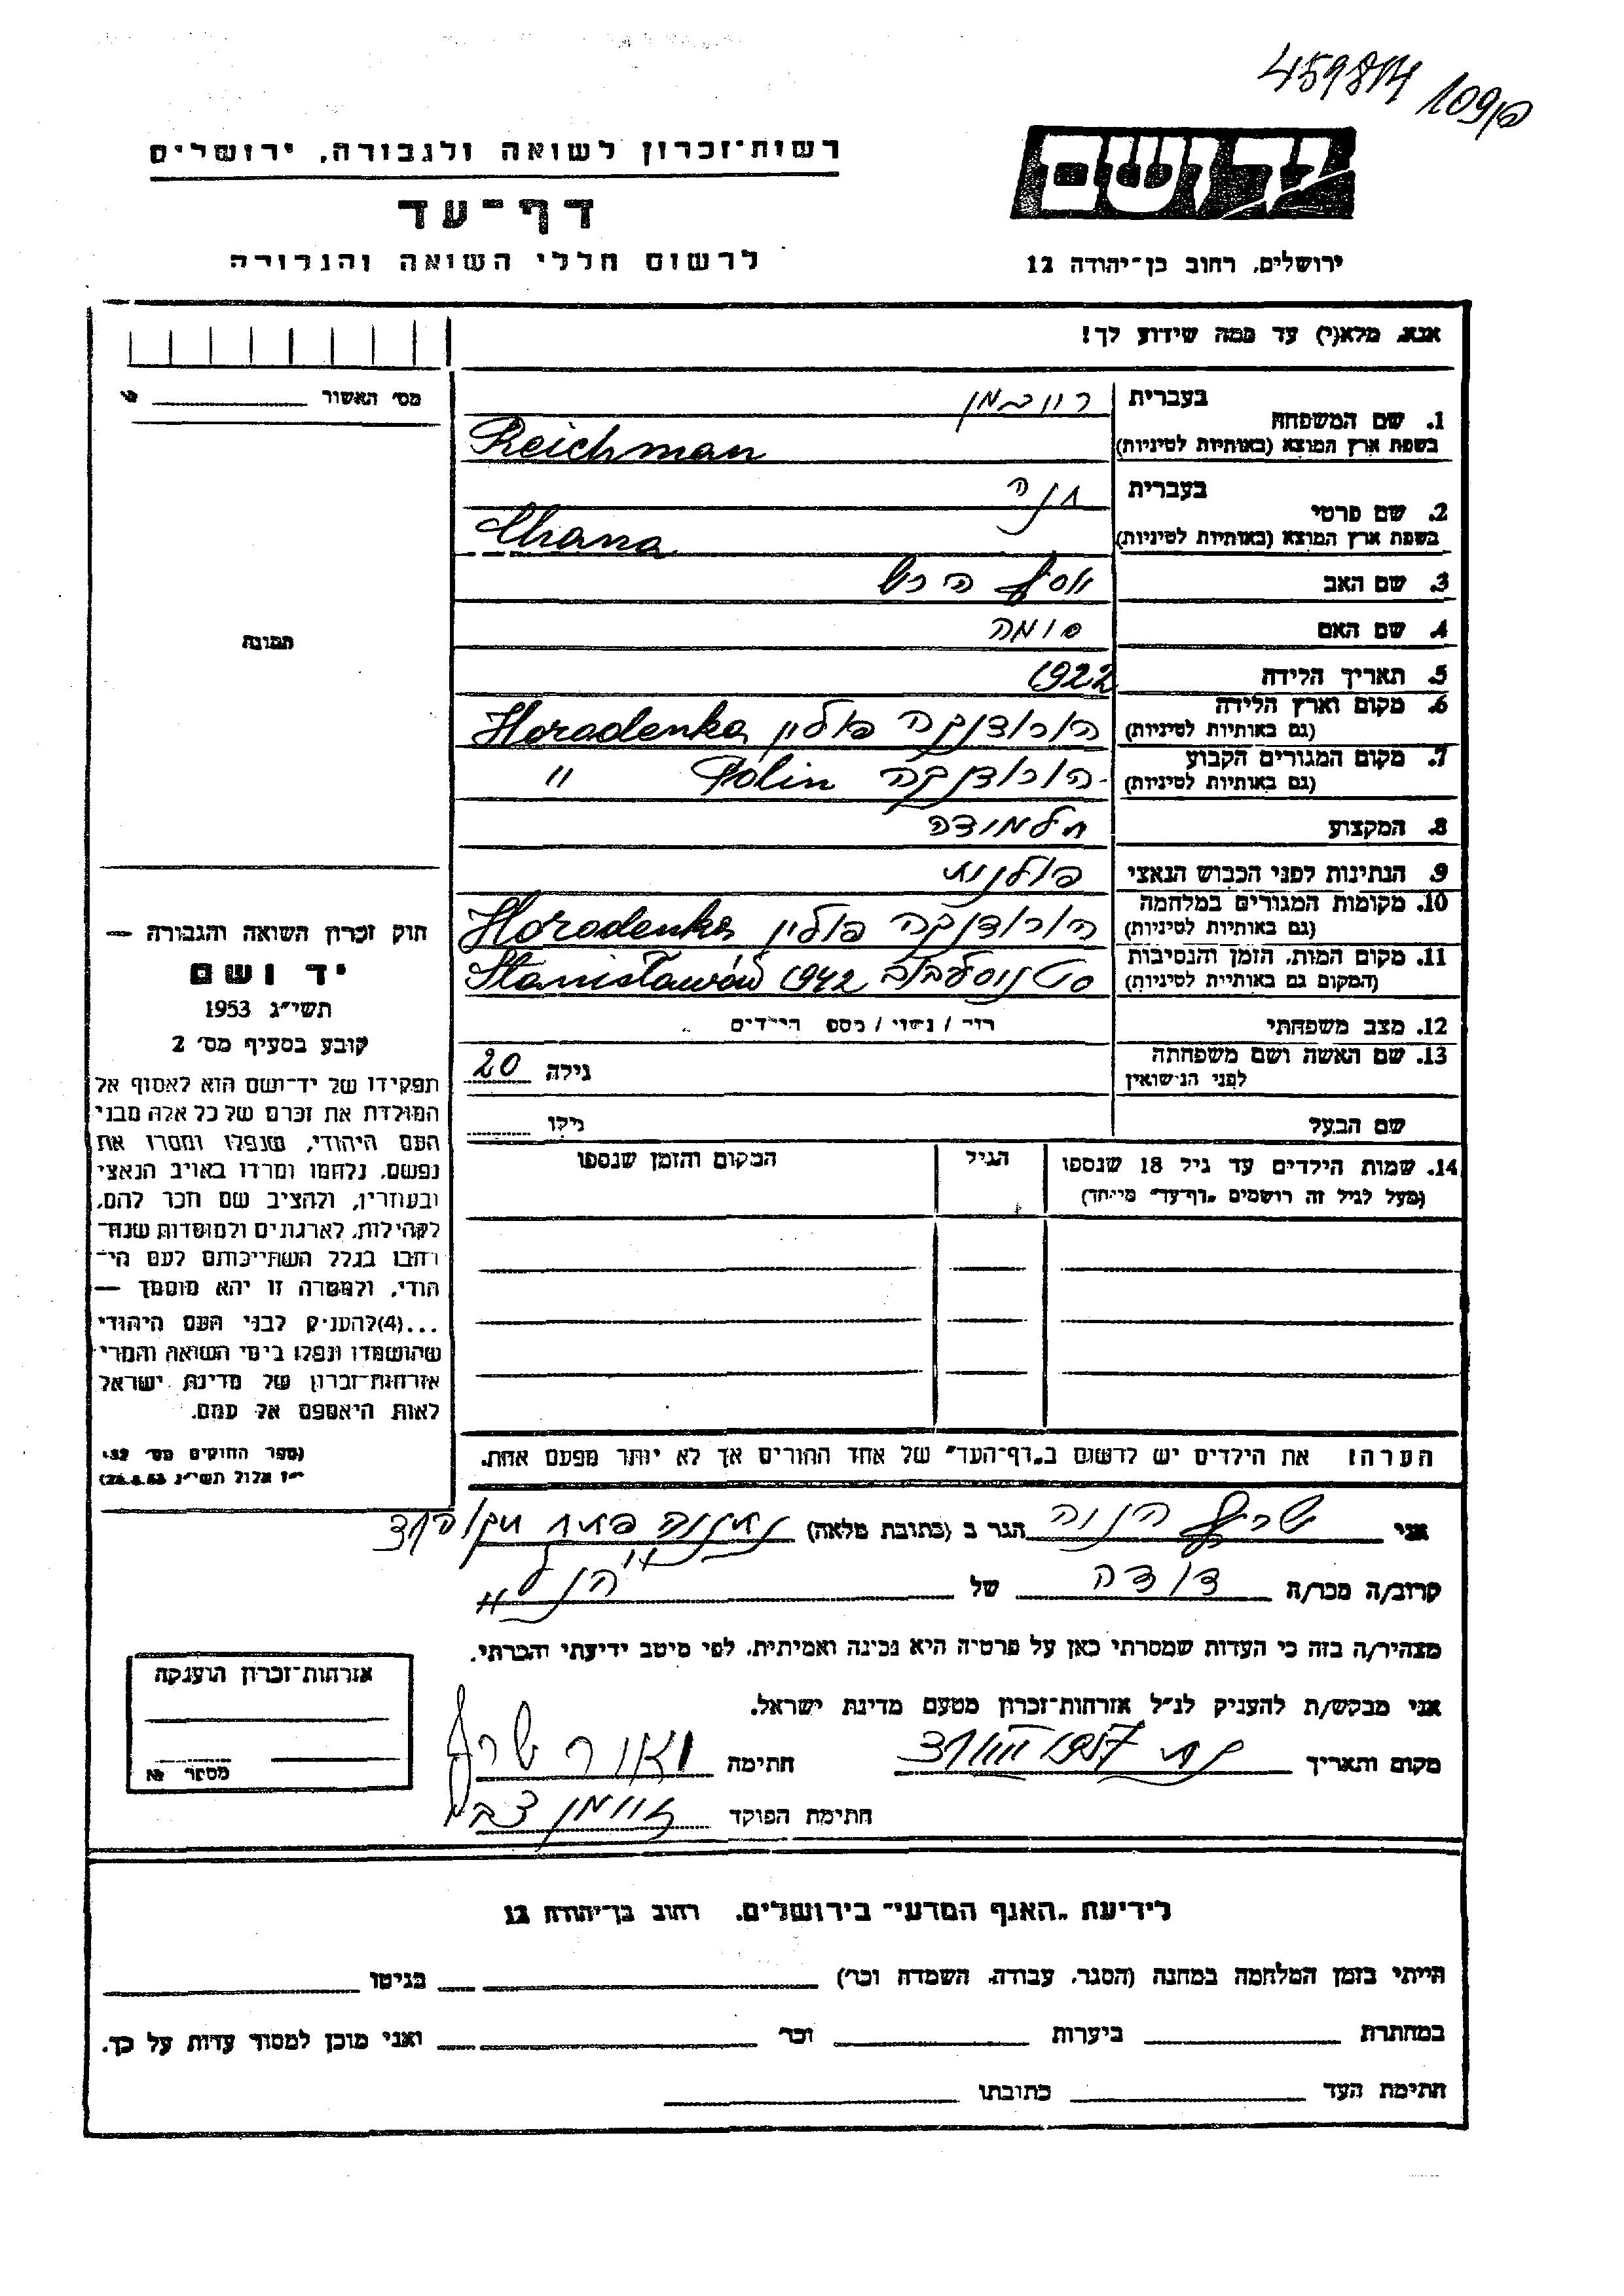 459814 109
יד ושם
ירושלים, רחוב בן־יהודה 12
רשות־זכרון לשואה ולגבורה, ירושלים
דף־עד
לרשום חללי השואה והגבורה
אנא, מלא(י) עד כמה שידוע לך!
מס׳ האשור
1. שם המשפחה בעברית רייכמן
בשפת ארץ המוצא (באותיות לטיניות) Reichman
2. שם פרטי בעברית חנה
בשפת ארץ המוצא (באותיות לטיניות) Chana
3. שם האב יוסף הרש
4. שם האם סימה
5. תאריך הלידה 1922
6. מקום וארץ הלידה (גם באותיות לטיניות) הורודנקה פולין Horodenka
7. מקום המגורים הקבוע (גם באותיות לטיניות) הורודנקה Polin "
8. המקצוע תלמידה
9. הנתינות לפני הכבוש הנאצי פולנית
10. מקומות המגורים במלחמה (גם באותיות לטיניות) הורודנקה פולין Horodenka
11. מקום המות, הזמן והנסיבות (המקום גם באותיות לטיניות) 1942 Stanisławów
12. מצב משפחתי רוק / נשוי / מספר הילדים
13. שם האשה ושם משפחתה לפני הנישואין גילה 20
שם הבעל גילו
14. שמות הילדים עד גיל 18 שנספו הגיל המקום והזמן שנספו
(מעל לגיל זה רושמים „דף־עד" מיוחד)
הערה: את הילדים יש לרשום ב„דף־העד" של אחד ההורים אך לא יותר מפעם אחת.
תמונה
חוק זכרון השואה והגבורה —
יד ושם
תשי״ג 1953
קובע בסעיף מס׳ 2
תפקידו של יד־ושם הוא לאסוף אל
המולדת את זכרם של כל אלה מבני
העם היהודי, שנפלו ומסרו את
נפשם, נלחמו ומרדו באויב הנאצי
ובעוזריו, ולהציב שם וזכר להם,
לקהילות, לארגונים ולמוסדות שנח־
רבו בגלל השתייכותם לעם הי־
הודי, ולמטרה זו יהא מוסמך —
...(4) להעניק לבני העם היהודי
שהושמדו ונפלו בימי השואה והמרי
אזרחות־זכרון של מדינת ישראל
לאות היאספם אל עמם.
(ספר החוקים מס׳ 132,
י״ז אלול תשי״ג 28.8.53)
אני שרף הגר ב (כתובת מלאה) פתח תקוה
קרוב/ה מכר/ה דודה של הנ"ל
מצהיר/ה בזה כי העדות שמסרתי כאן על פרטיה היא נכונה ואמיתית, לפי מיטב ידיעתי והכרתי.
אני מבקש/ת להעניק לנ״ל אזרחות־זכרון מטעם מדינת ישראל.
מקום ותאריך חתימה שרף
חתימת הפוקד
אזרחות־זכרון הוענקה
מספר
לידיעת „האגף המדעי" בירושלים, רחוב בן־יהודה 12
הייתי בזמן המלחמה במחנה (הסגר, עבודה, השמדה וכר׳) בגיטו
במחתרת ביערות וכר׳ ואני מוכן למסור עדות על כך.
חתימת העד כתובתו